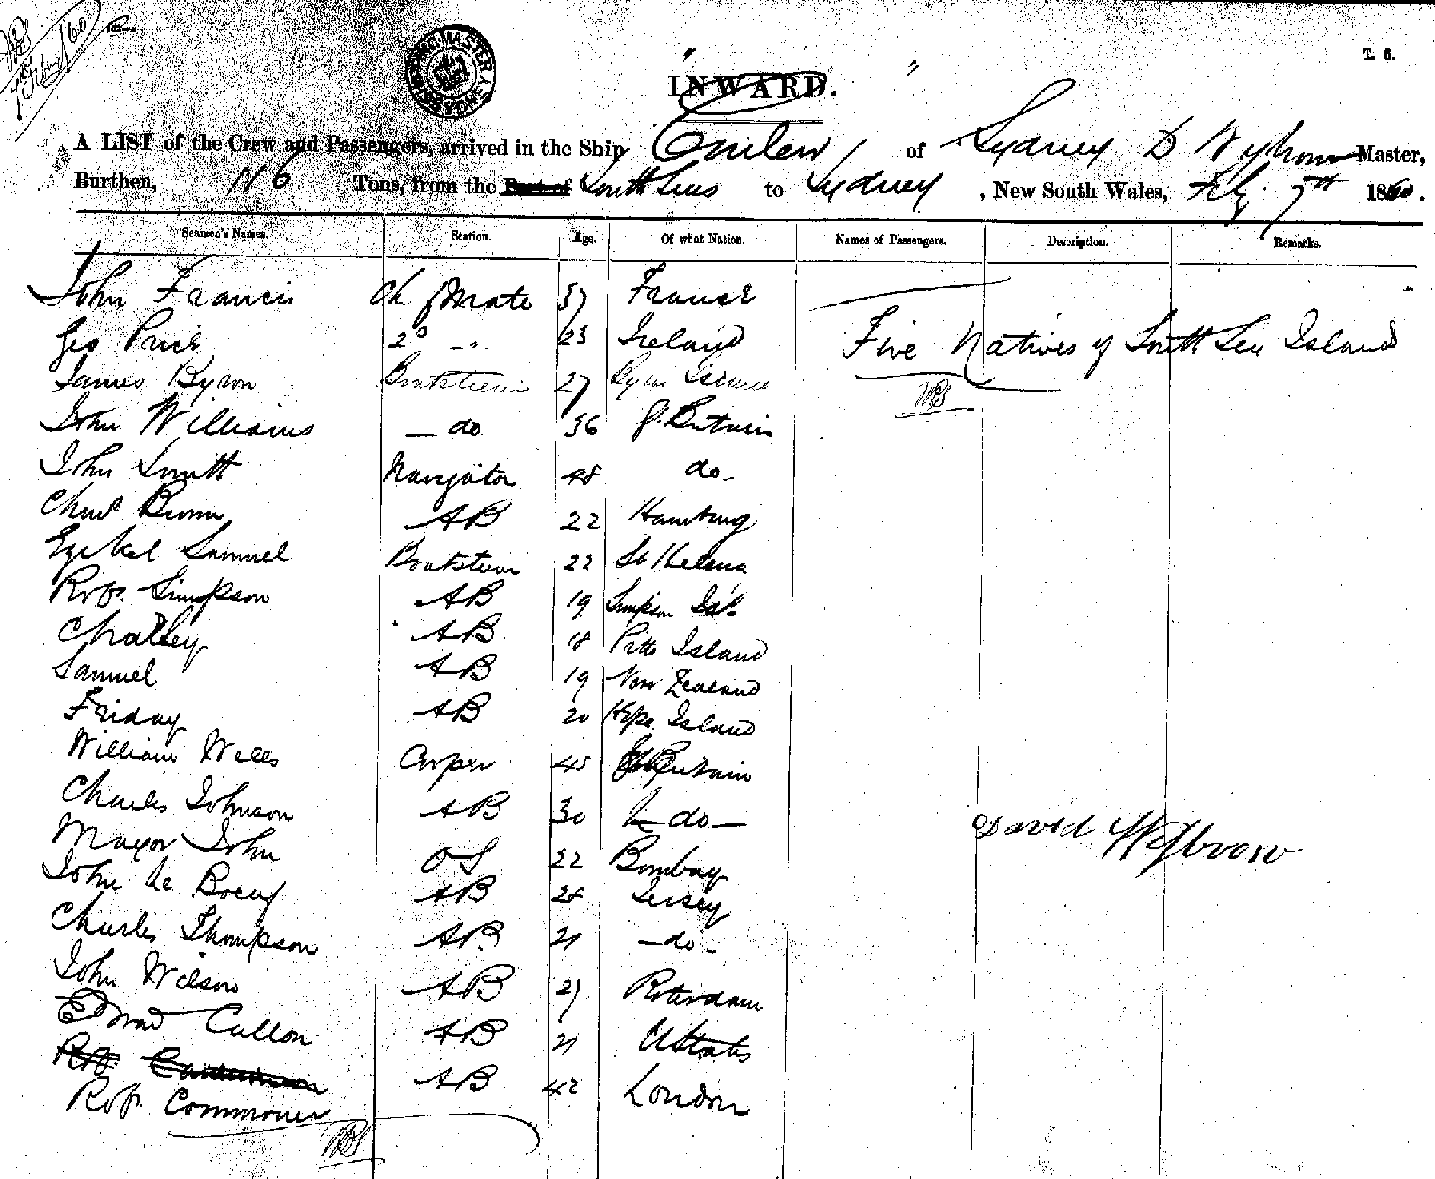 T. 6.
INWARD.
A LIST of the Crew and Passengers, arrived in the Ship Curlew of Sydney D Master,
Burthen, 116 Tons, from the Port of South Seas to Sydney, New South Wales, Feby 7th 1860.
Seamen's Names. Station. Age. Of what Nation. Names of Passengers. Description. Remarks.
John Francis Ch Mate 37 France
Geo Price 2d " 23 Ireland Five Natives of South Sea Island
James Byron Boatsteerer 27
John Williams do 36 G. Britain
John Smith Navigator 48 do
Chas Brown AB 22 Hamburg
Ezekel Samuel Boatsteerer 22 St Helena
Robt Simpson AB 19 Simpson Isld
Challey AB 18 Pitt Island
Samuel AB 19 New Zealand
Friday AB 20 Hope Island
William Wells Carpen 45 Gt Britain
Charles Johnson AB 30 do
Mayor John OS 22 Bombay
John Le Boeuf AB 28 Jersey
David
Charles Thompson AB 21 do
John Wilson AB 27 Roterdam
Edward Cullon AB 21 U States
Robt
Robt Commoner AB 42 London